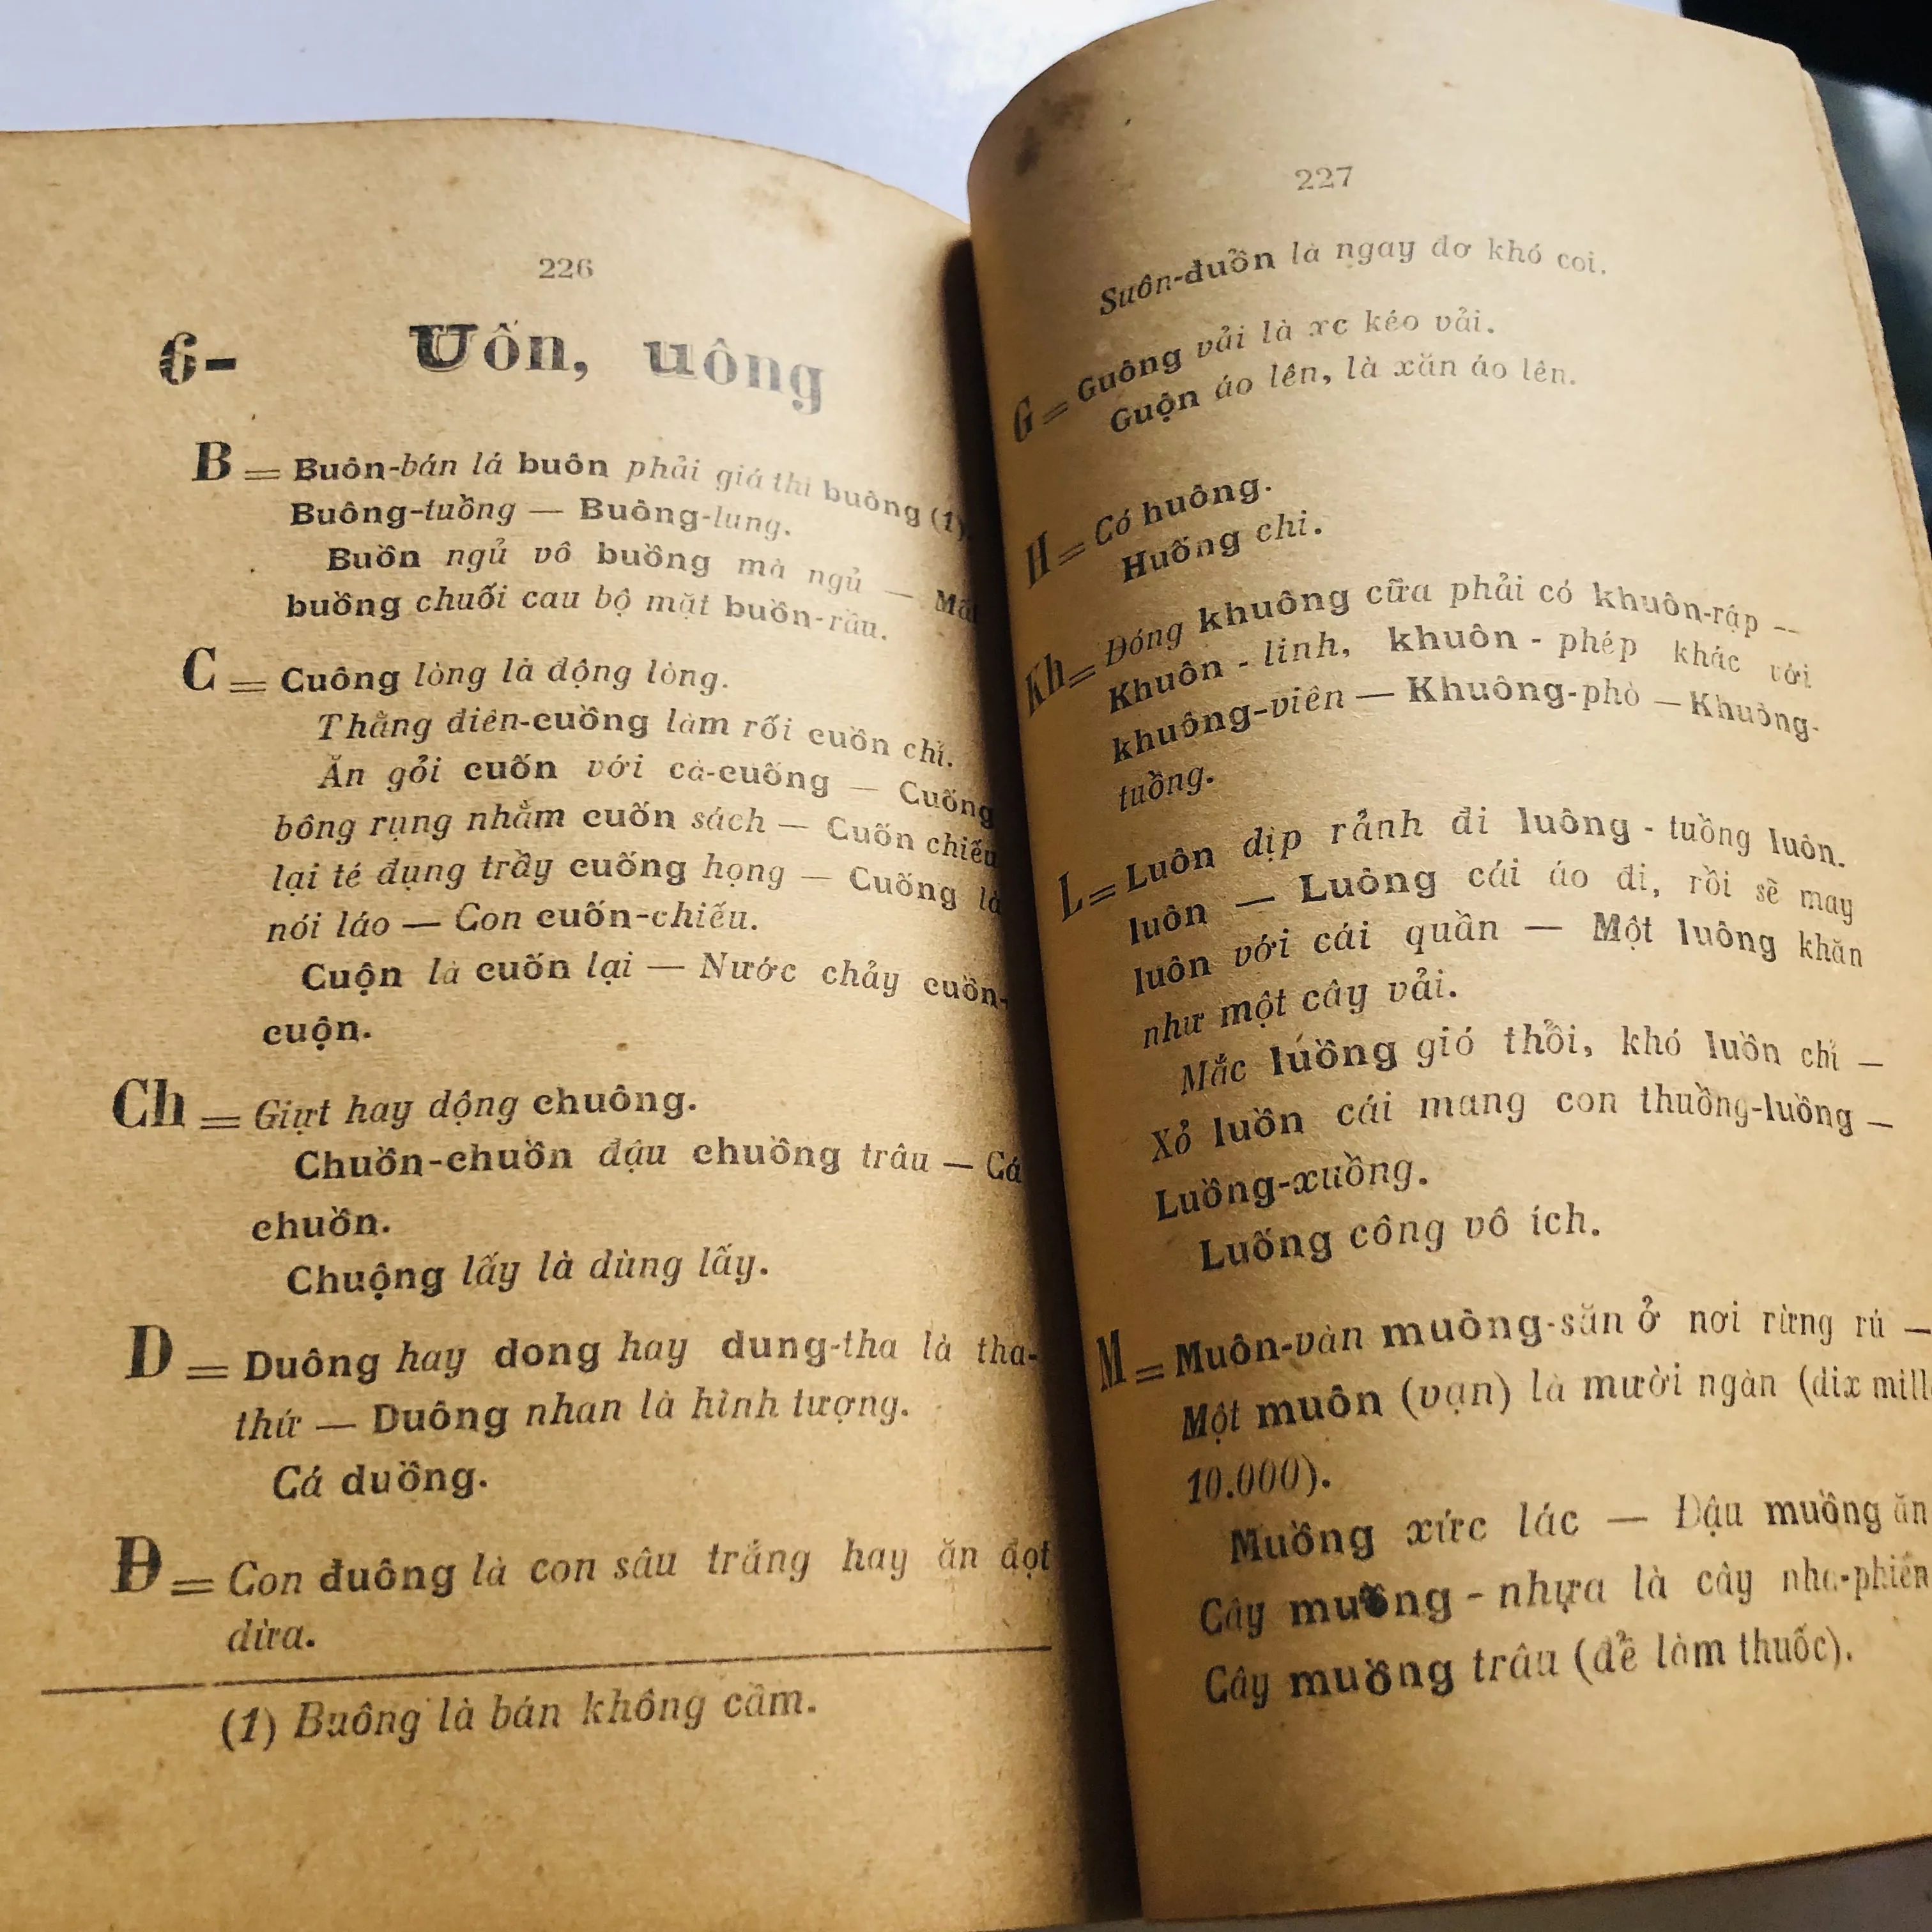 226
6- Uôn, uông
B = Buôn-bán lá buôn phải giá thì buông (1).
Buông-tuồng — Buông-lung.
Buồn ngủ vô buồng mà ngủ —
buồng chuối cau bộ mặt buồn-rầu.
C = Cuông lòng là động lòng.
Thằng điên-cuồng làm rối cuồn chỉ.
Ăn gỏi cuốn với cà-cuống — Cuống
bông rụng nhằm cuốn sách — Cuốn chiếu
lại té đụng trầy cuống họng — Cuống là
nói láo — Con cuốn-chiếu.
Cuộn là cuốn lại — Nước chảy cuồn-
cuộn.
Ch = Giựt hay dộng chuông.
Chuồn-chuồn đậu chuồng trâu — Cá
chuồn.
Chuộng lấy là dùng lấy.
D = Duông hay dong hay dung-tha là tha-
thứ — Duông nhan là hình tượng.
Cá duồng.
Đ = Con đuông là con sâu trắng hay ăn đọt
dừa.
(1) Buông là bán không cầm.
227
Suôn-đuồn là ngay đơ khó coi.
G = Guông vải là xe kéo vải.
Guộn áo lên, là xăn áo lên.
H = Có huông.
Huống chi.
Kh = Đóng khuông cữa phải có khuôn-rập —
Khuôn - linh, khuôn - phép khác với
khuông-viên — Khuông-phò — Khuông-
tuồng.
L = Luôn dịp rảnh đi luông - tuồng luôn.
luôn — Luông cái áo đi, rồi sẽ may
luôn với cái quần — Một luông khăn
như một cây vải.
Mắc luồng gió thổi, khó luồn chỉ —
Xỏ luồn cái mang con thuồng-luồng —
Luồng-xuồng.
Luống công vô ích.
M = Muôn-vàn muông-săn ở nơi rừng rú —
Một muôn (vạn) là mười ngàn (dix mill
10.000).
Muồng xức lác — Đậu muồng ăn
Cây muồng - nhựa là cây nha-phiến
Cây muồng trâu (để làm thuốc).